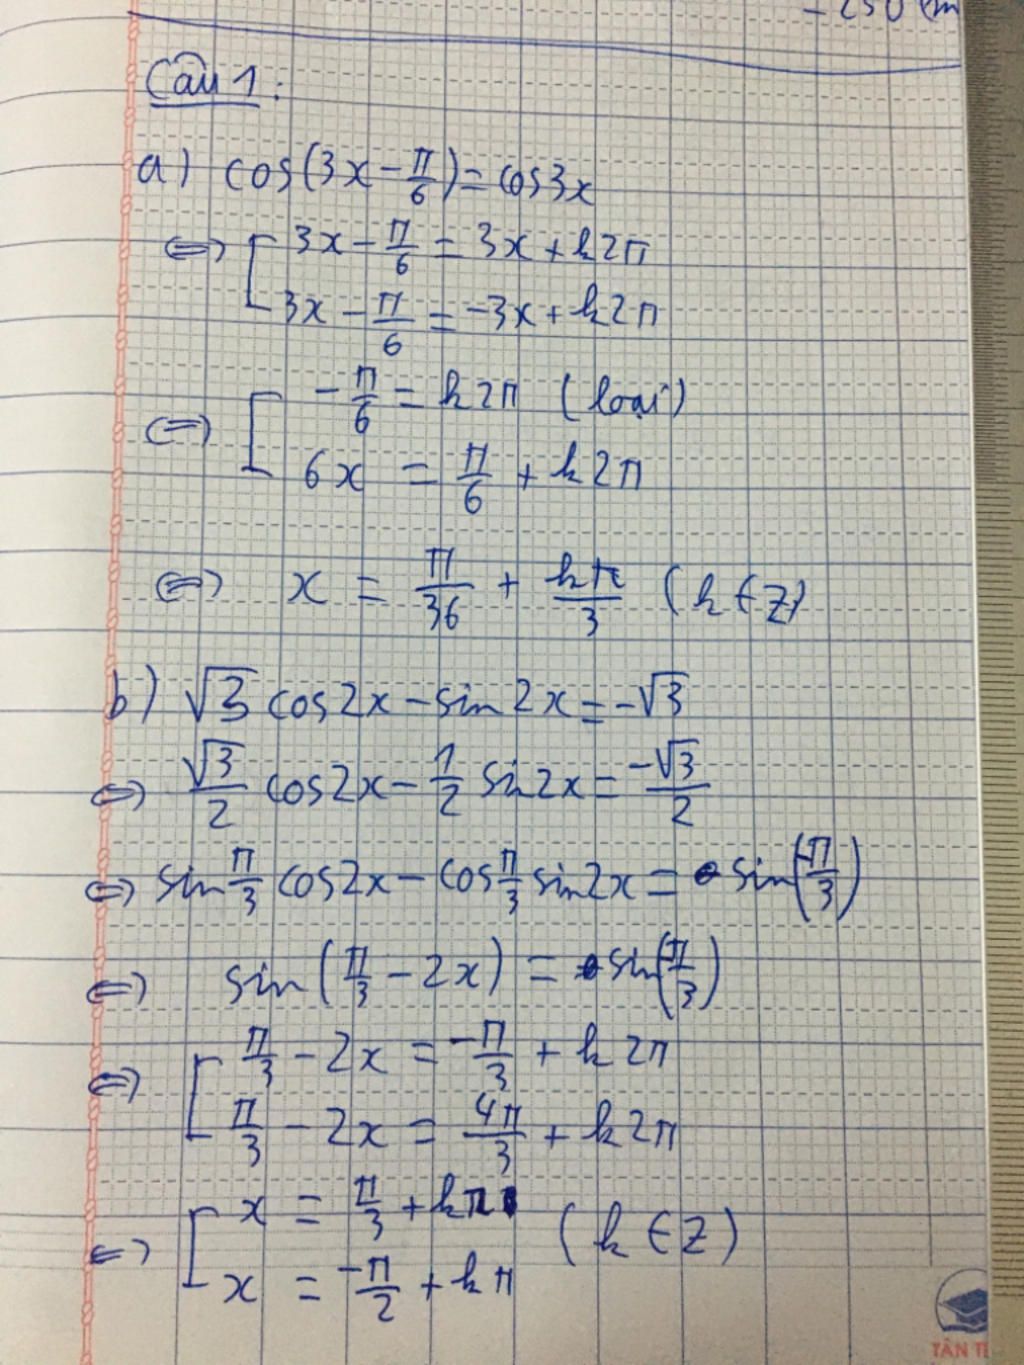 - 250 cm
Câu 1:
a) cos(3x - π/6) = cos3x
⇔ [ 3x - π/6 = 3x + k2π
3x - π/6 = -3x + k2π
⇔ [ -π/6 = k2π (loại)
6x = π/6 + k2π
⇔ x = π/36 + kπ/3 (k ∈ Z)
b) √3 cos2x - sin2x = -√3
⇔ √3/2 cos2x - 1/2 sin2x = -√3/2
⇔ sin π/3 cos2x - cos π/3 sin2x = sin(-π/3)
⇔ sin(π/3 - 2x) = sin(-π/3)
⇔ [ π/3 - 2x = -π/3 + k2π
π/3 - 2x = 4π/3 + k2π
⇔ [ x = π/3 + kπ
x = -π/2 + kπ (k ∈ Z)